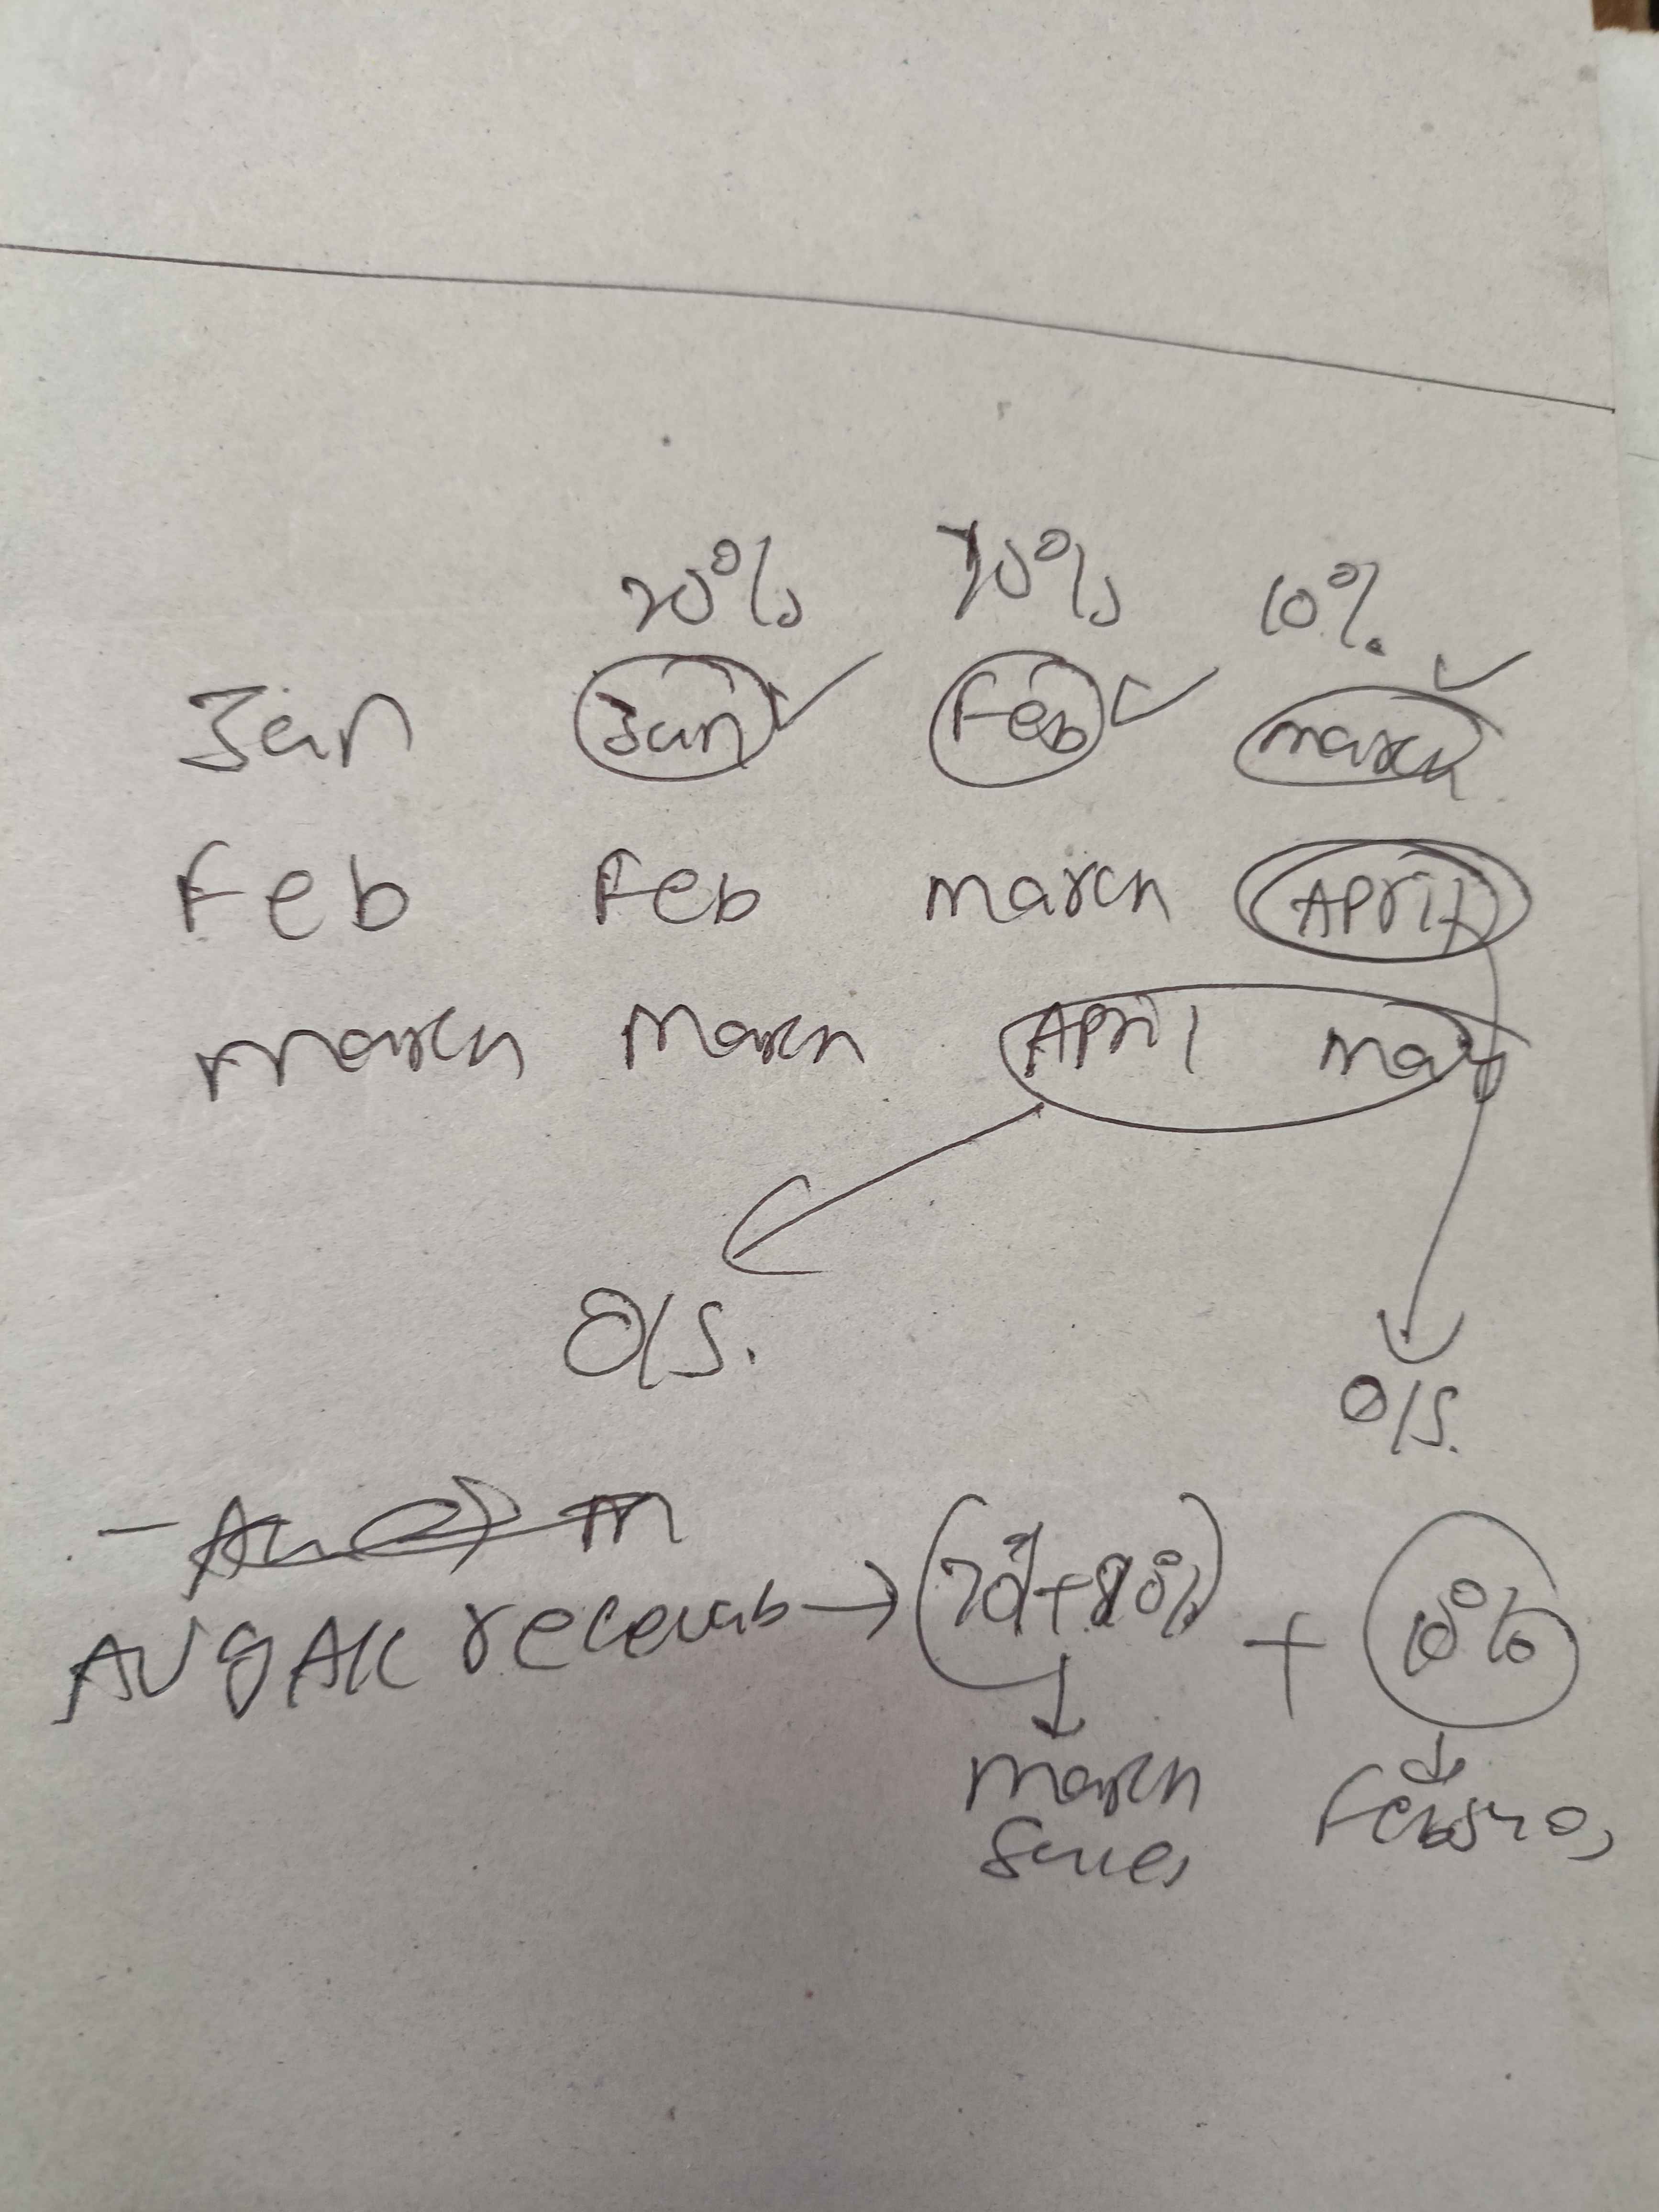 20% 70% 10%.
Jan Jan Feb march
Feb Feb march April
march March April may
O/S.
O/S.
Avg A/c receivab → (70%+10%) + 10%
march Feb